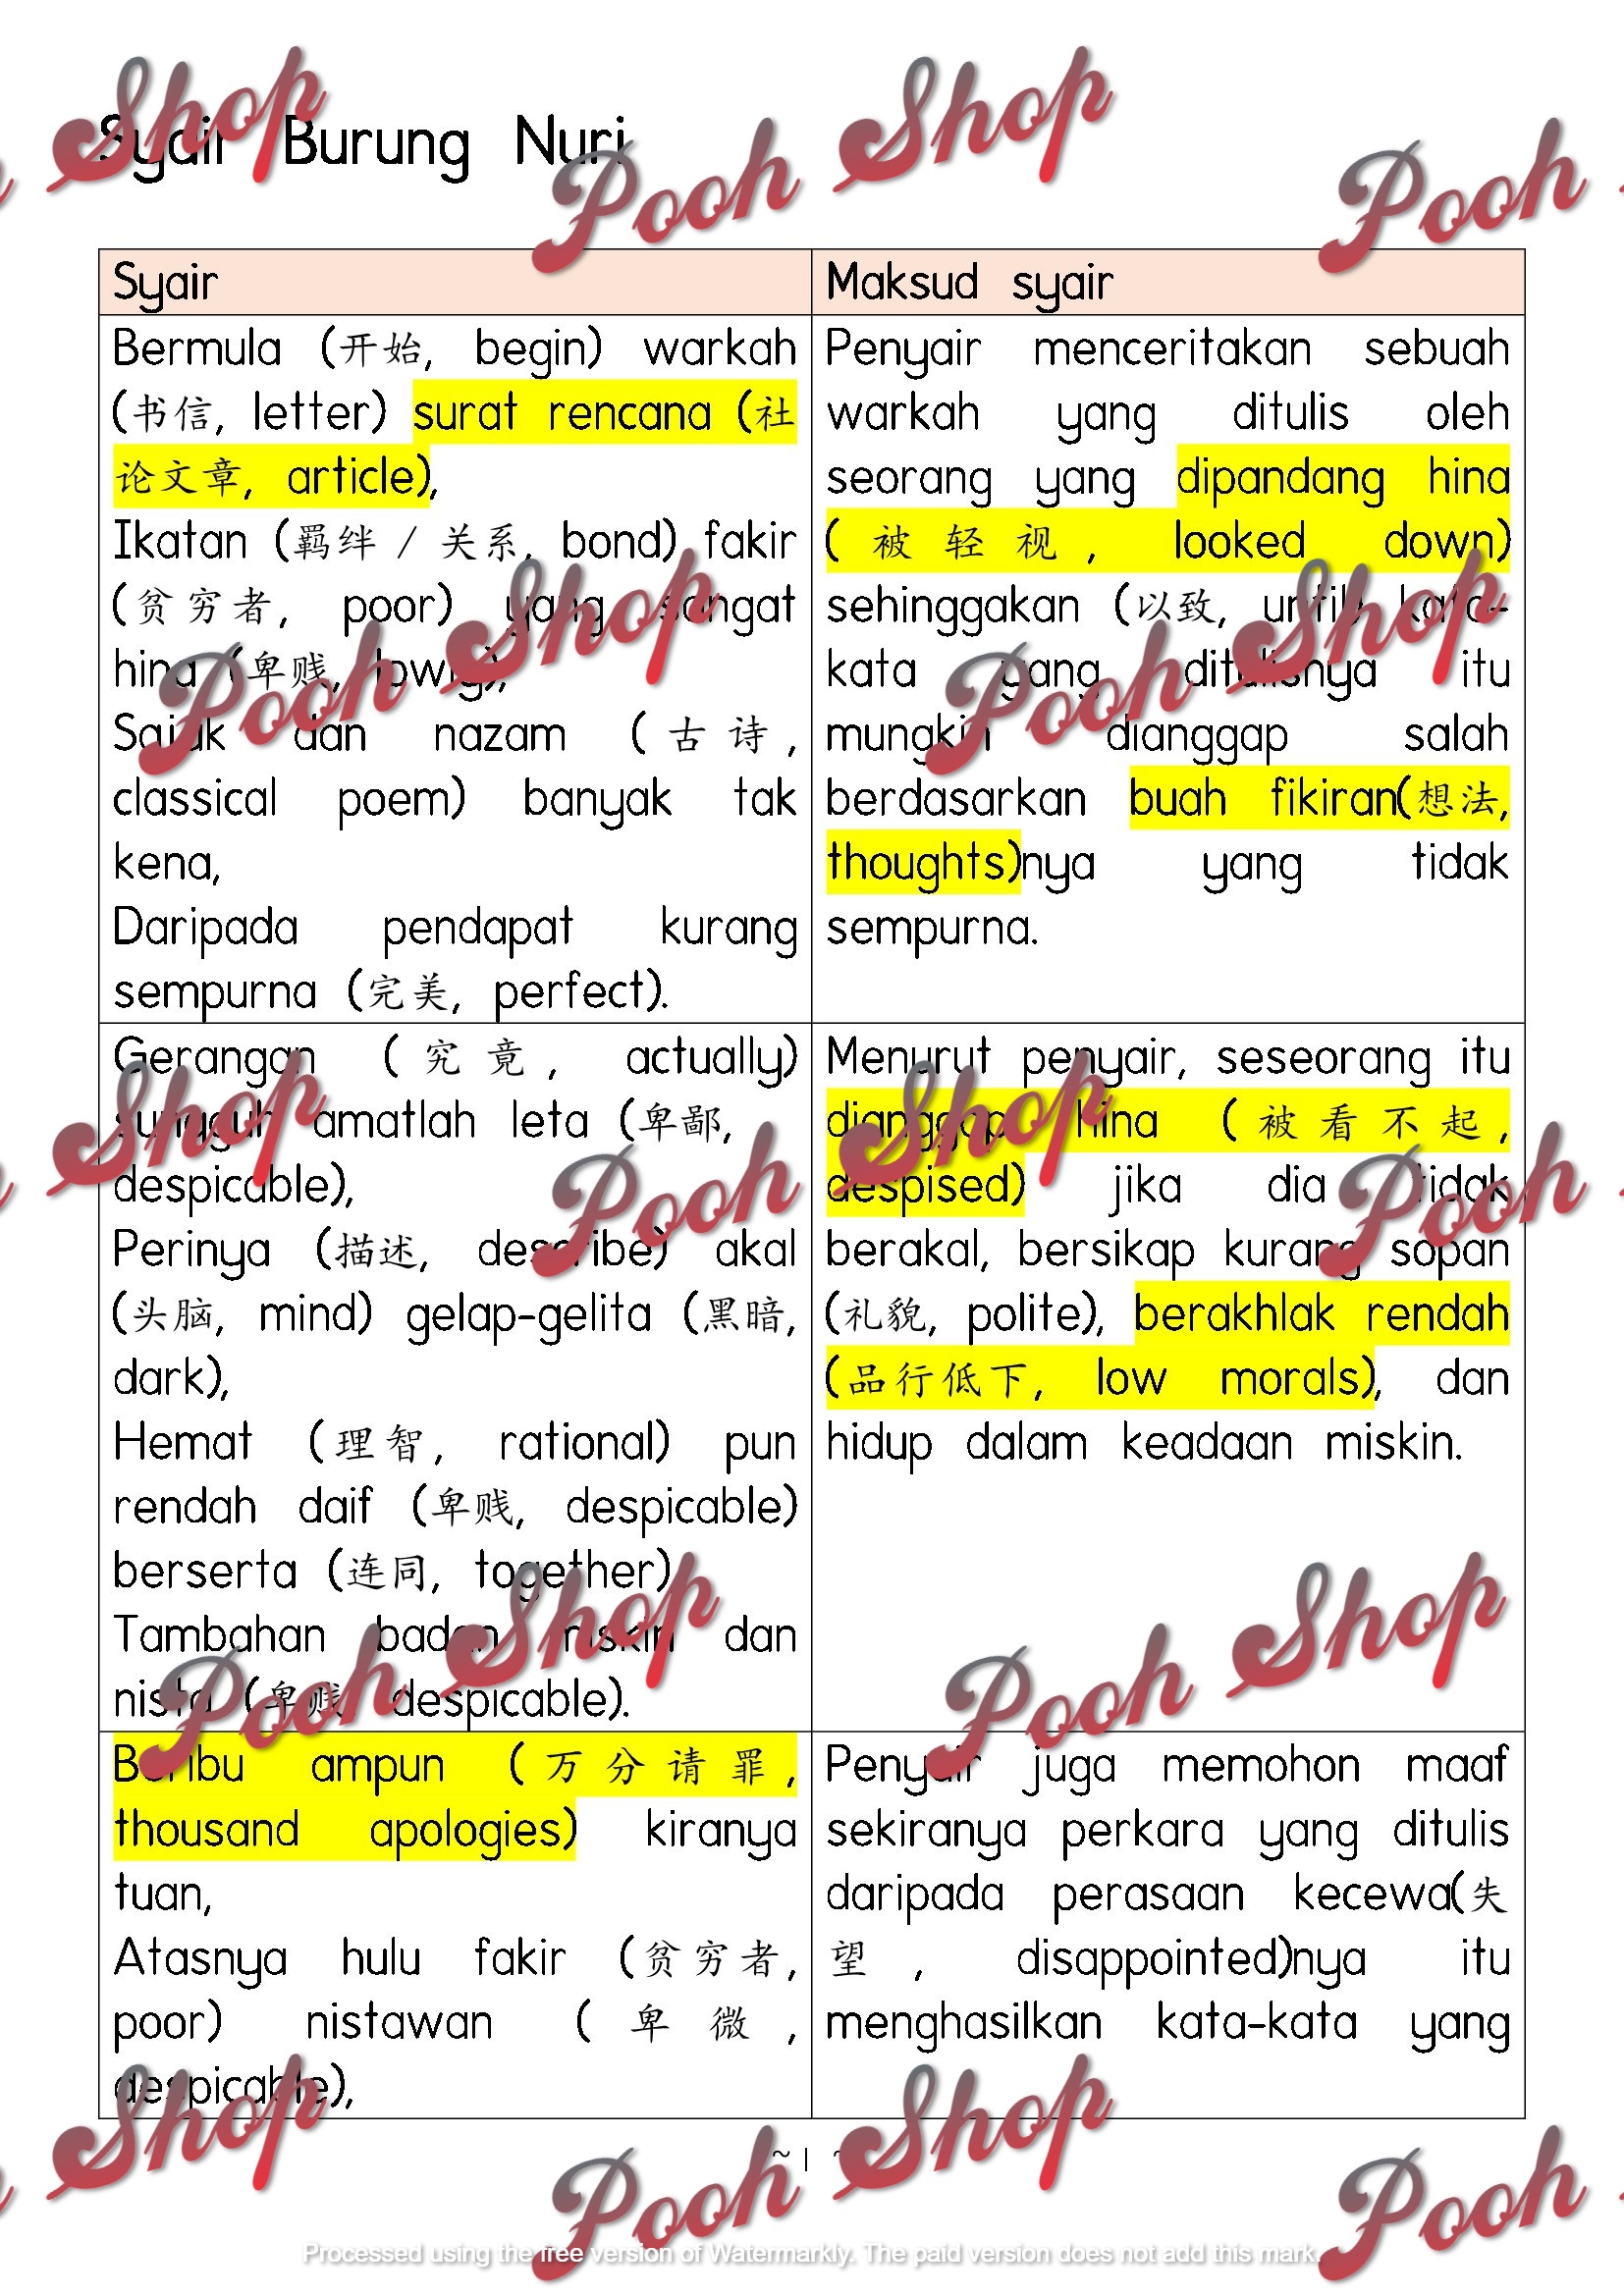 Syair Burung Nuri
Syair
Bermula (开始, begin) warkah
(书信, letter) surat rencana (社
论文章, article),
Ikatan (羁绊 / 关系, bond) fakir
(贫穷者, poor) yang sangat
hina (卑贱, lowly),
Sajak dan nazam (古诗,
classical poem) banyak tak
kena,
Daripada pendapat kurang
sempurna (完美, perfect).
Maksud syair
Penyair menceritakan sebuah
warkah yang ditulis oleh
seorang yang dipandang hina
(被轻视, looked down)
sehinggakan (以致, until) kata-
kata yang ditulisnya itu
mungkin dianggap salah
berdasarkan buah fikiran(想法,
thoughts)nya yang tidak
sempurna.
Gerangan (究竟, actually)
sungguh amatlah leta (卑鄙,
despicable),
Perinya (描述, describe) akal
(头脑, mind) gelap-gelita (黑暗,
dark),
Hemat (理智, rational) pun
rendah daif (卑贱, despicable)
berserta (连同, together)
Tambahan badan miskin dan
nista (卑贱, despicable).
Menurut penyair, seseorang itu
dianggap hina (被看不起,
despised) jika dia tidak
berakal, bersikap kurang sopan
(礼貌, polite), berakhlak rendah
(品行低下, low morals), dan
hidup dalam keadaan miskin.
Beribu ampun (万分请罪,
thousand apologies) kiranya
tuan,
Atasnya hulu fakir (贫穷者,
poor) nistawan (卑微,
despicable),
Penyair juga memohon maaf
sekiranya perkara yang ditulis
daripada perasaan kecewa(失
望, disappointed)nya itu
menghasilkan kata-kata yang
~ 1 ~
Pooh Shop
Pooh Shop
Pooh Shop
Pooh Shop
Pooh Shop
Pooh Shop
Pooh Shop
Processed using the free version of Watermarkly. The paid version does not add this mark.